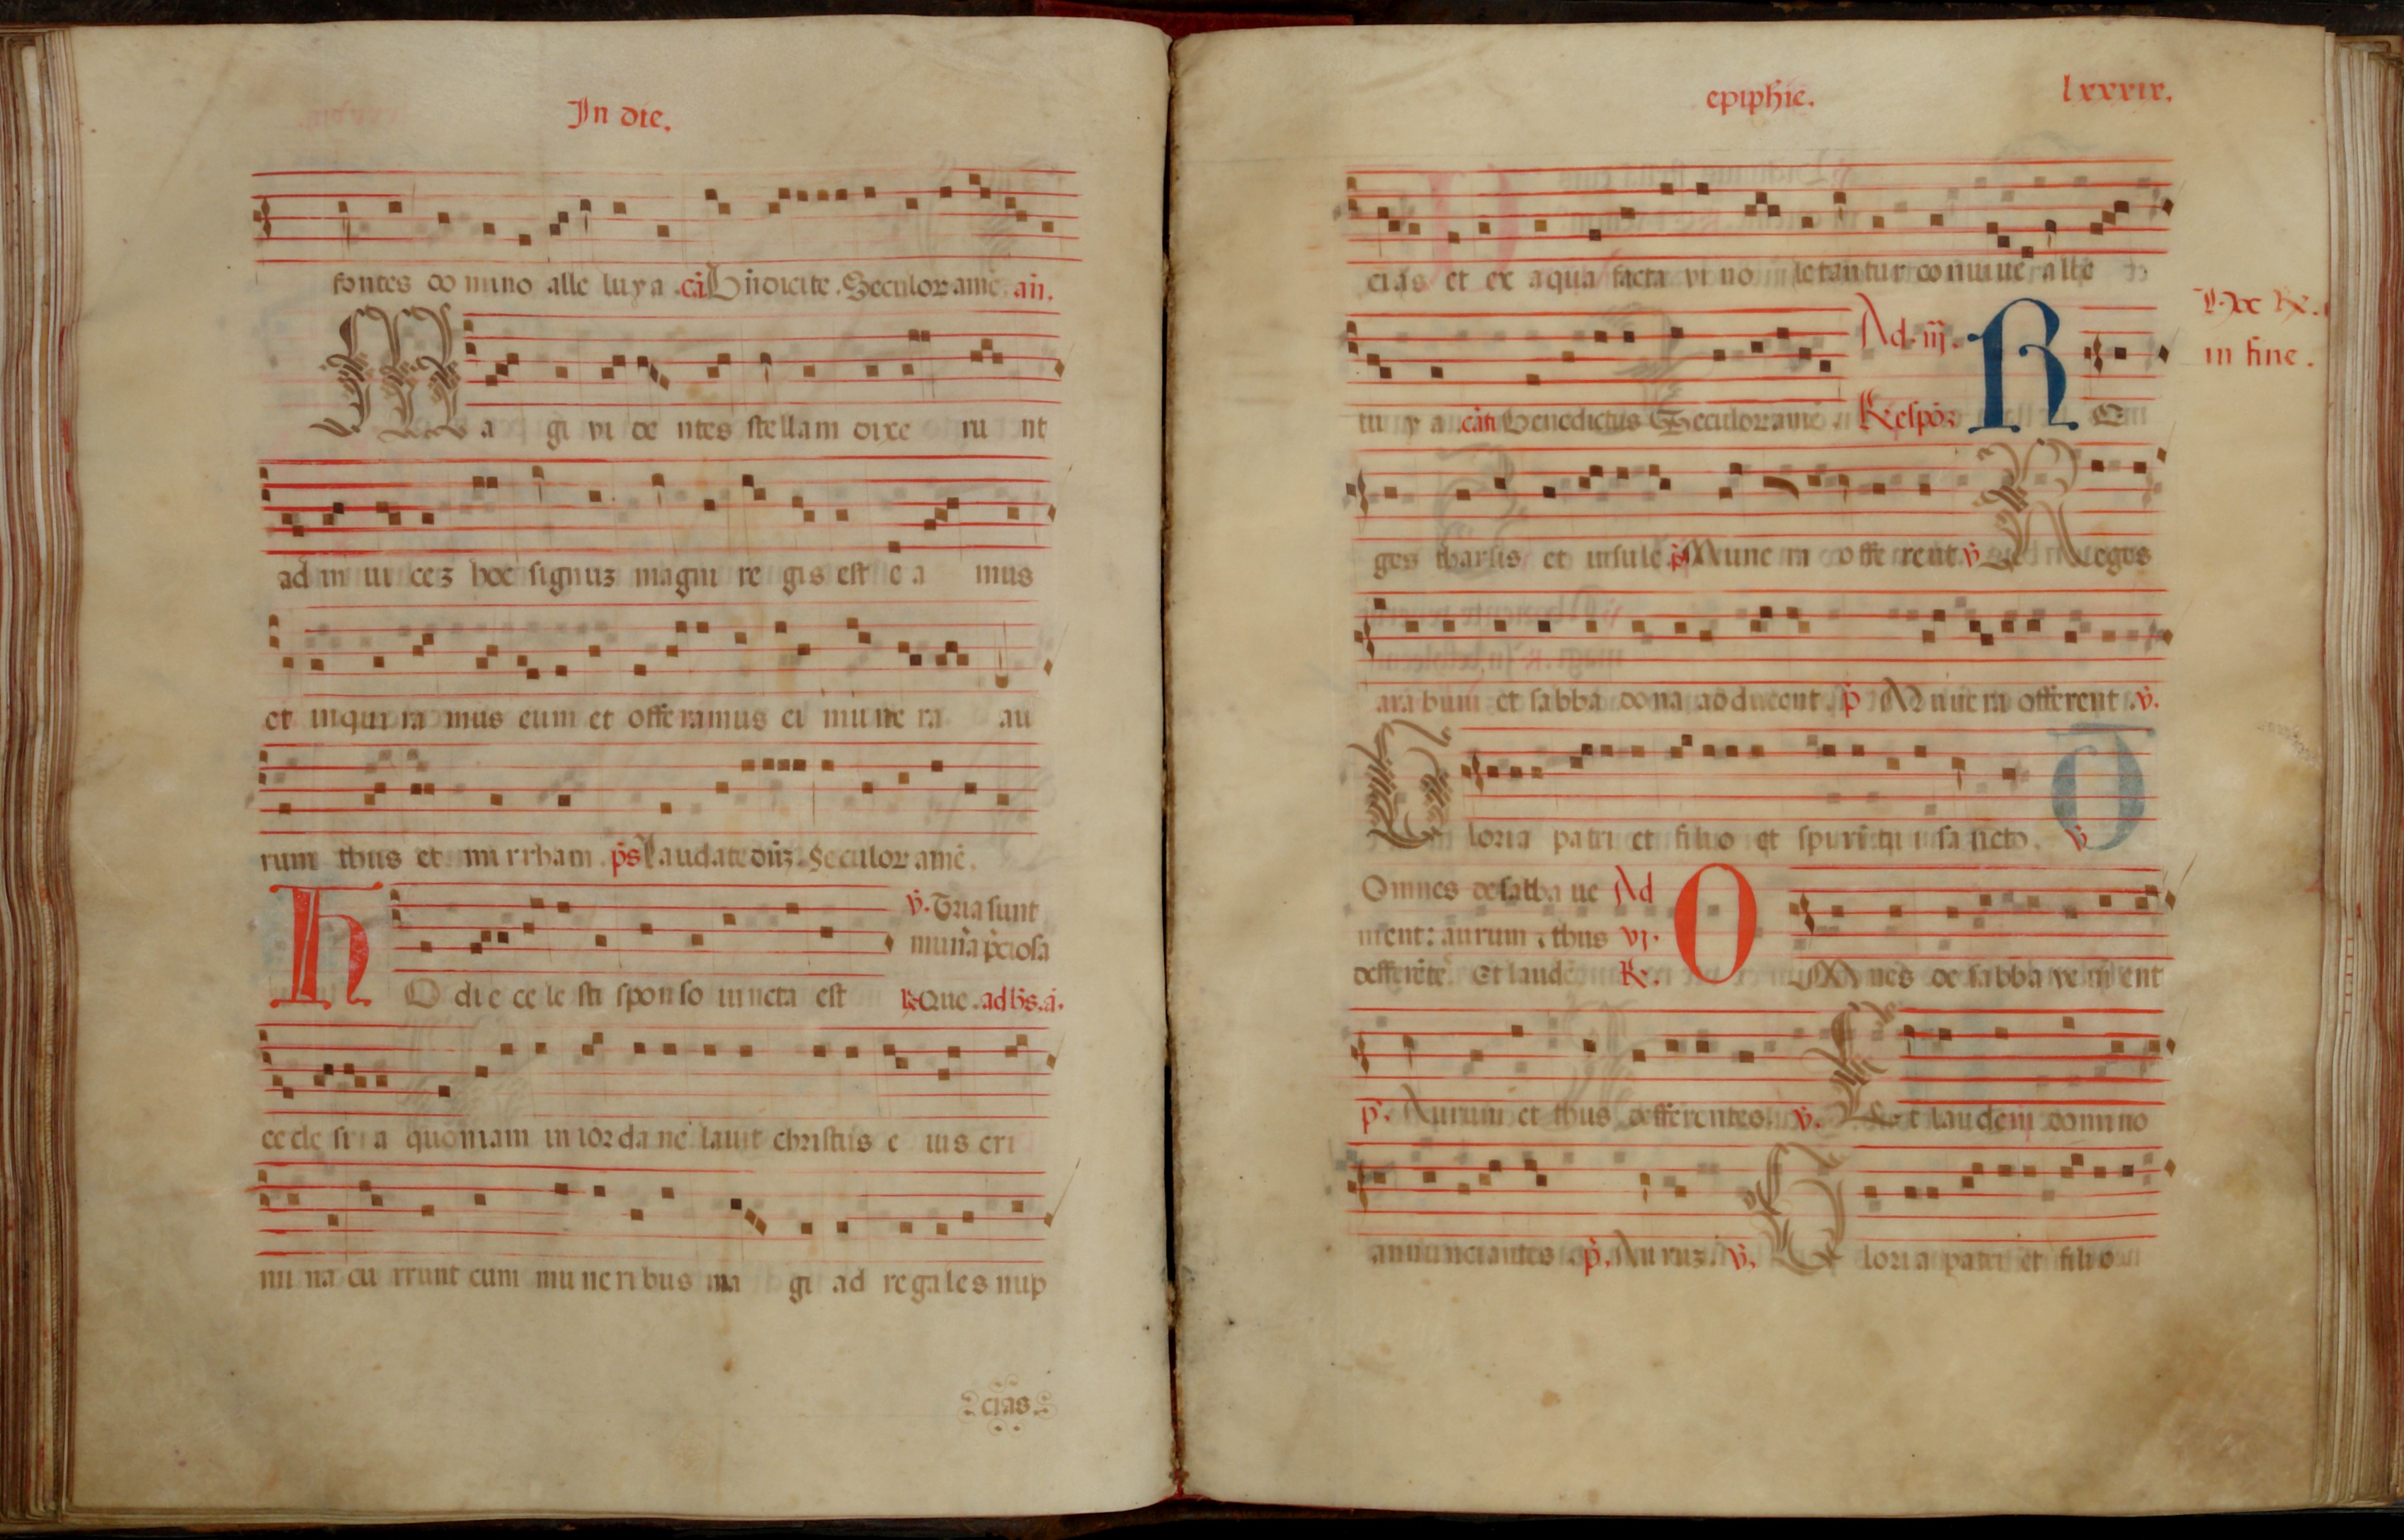 In die.
fontes do mino alle luya .cā. Bn̄dicite. Seculor amē. añ.
M a gi vi de ntes stellam dixe ru nt
ad in ui cez hoc signuz magni re gis est e a mus
et inqui ra mus eum et offe ramus ei mu ne ra au
rum thus et mi rrham. p̄s Laudate dn̄z. Seculor amē.
℣. Tria sunt
mun̄a p̄ciosa
H O die ce le sti sponso iuncta est ℟ Que. ad bn̄s. a.
ec cle si a quoniam in ior da ne lauit christus e ius cri
mi na cu rrunt cum mu neribus ma gi ad regales nup
cias
epiphie. lxxxix.
cias et ex aqua facta vi no letantur conuiue alle
in fine.
Ad .iij.
lu y a .cān. Benedictus Seculor amē. Respōz R E
ges tharsis et insule. p̄. Mune ra offe rent. ℣. Reges
ara bum et sabba dona adducent. p̄. Mune ra offerent. ℣.
G loria patri et filio et spiritu i sa ncto. ℣
Omnes de sabba ue Ad
nient: aurum ⁊ thus vj.
defferētē. Et laudē ℟. O Mnes de sabba ve ni ent
p̄. Aurum et thus defferentes. ℣. Et laudem domino
annunciantes. p̄. Auruz. ℣. G loria patri et filio